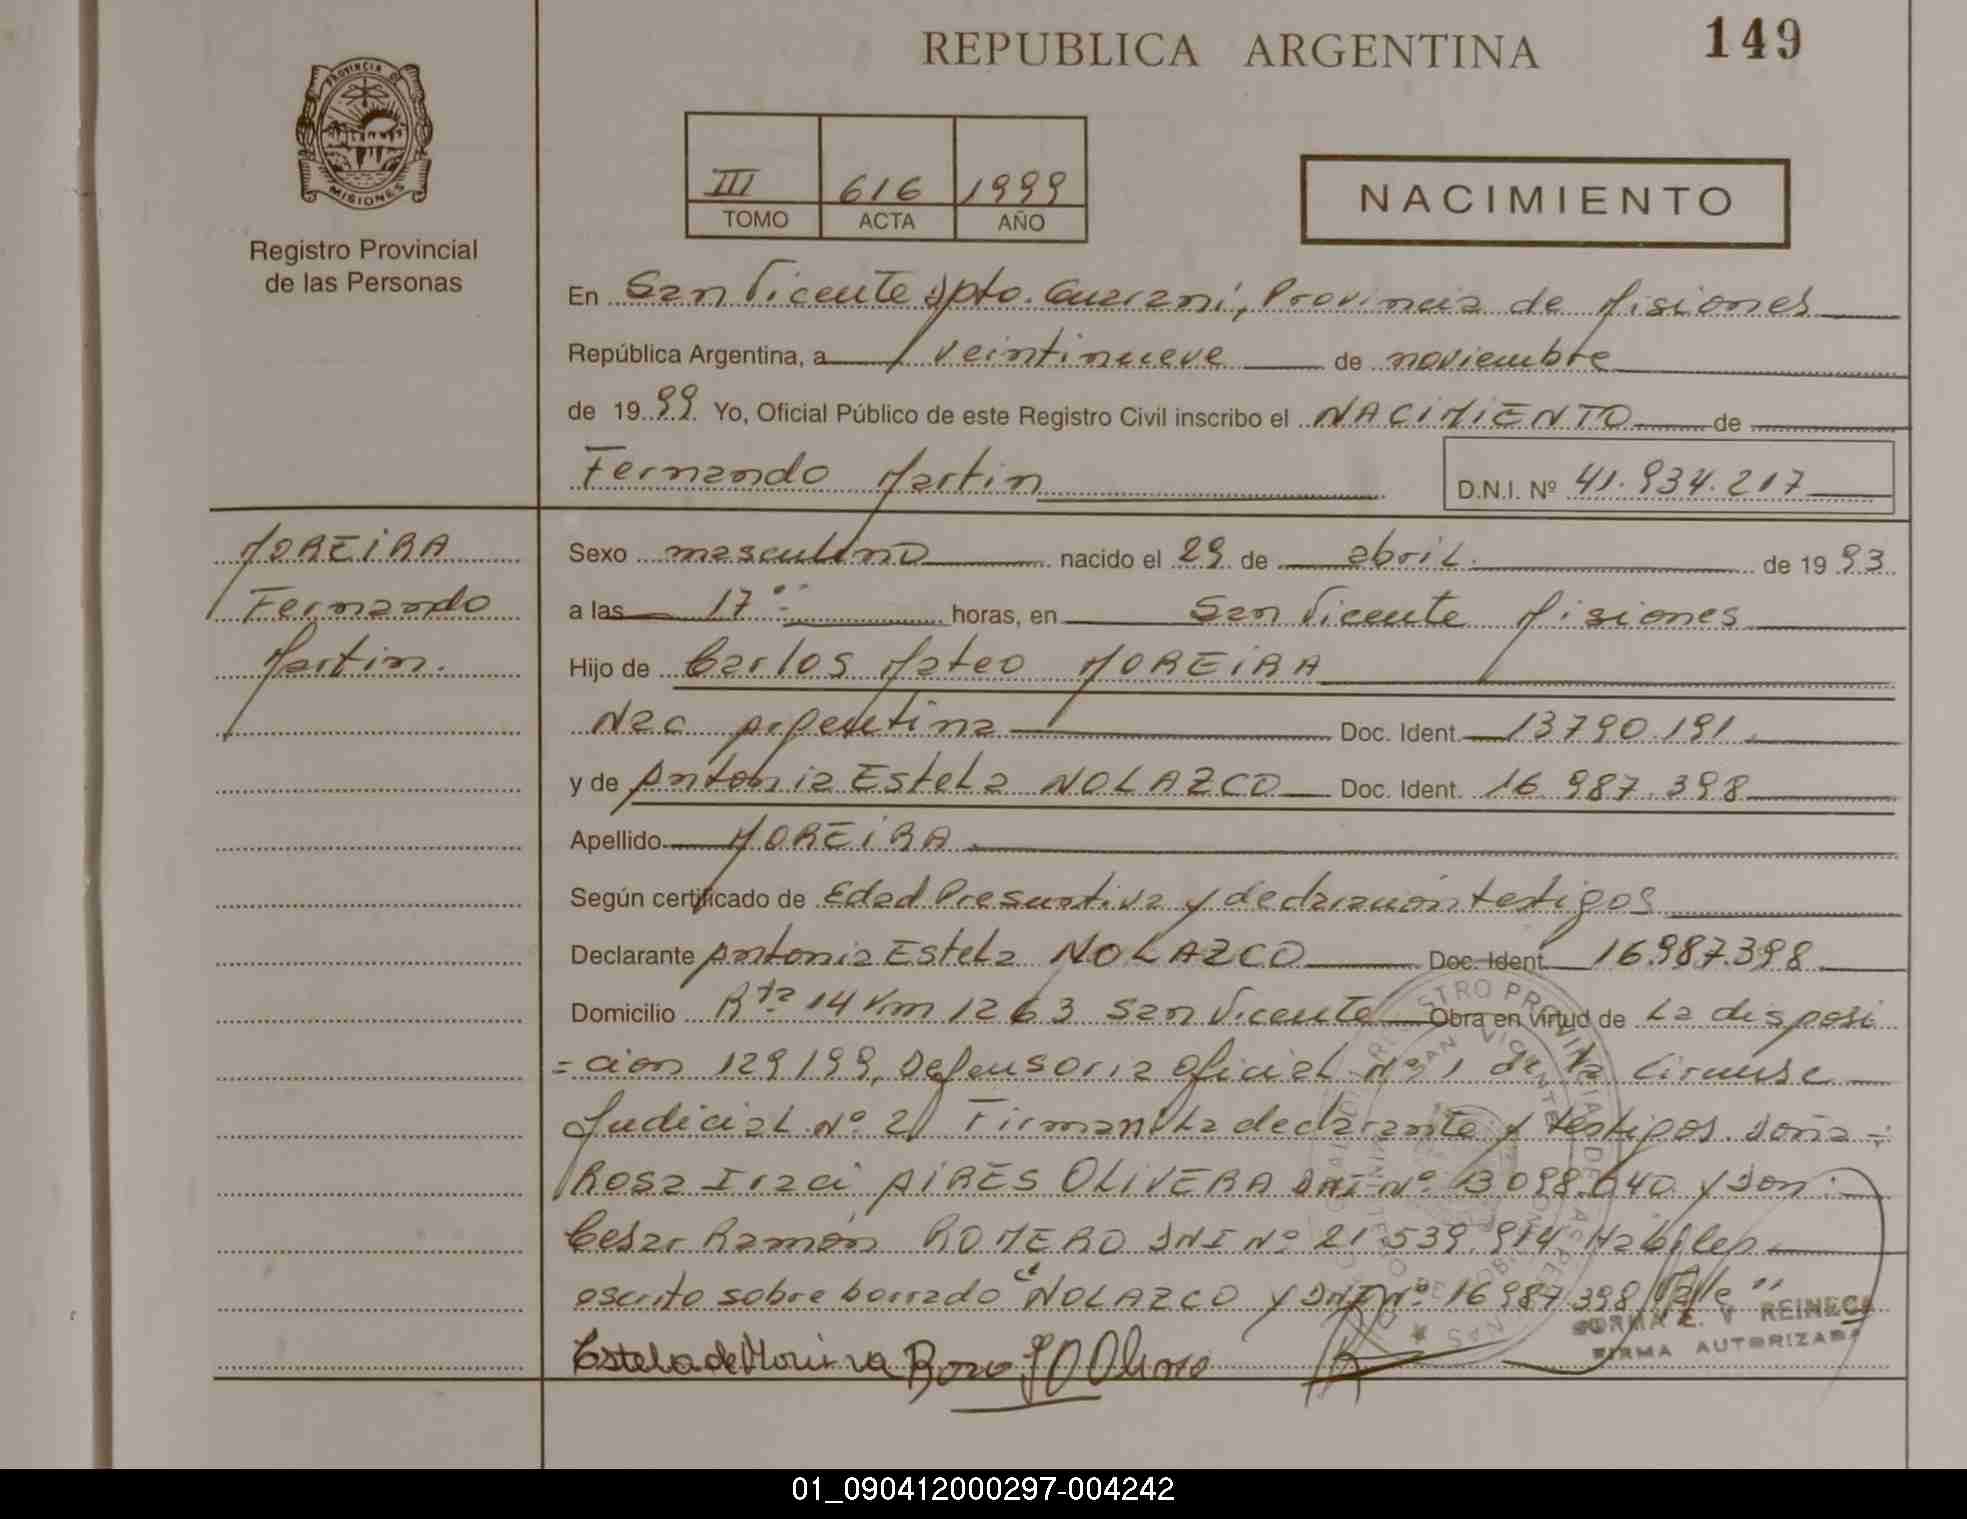 REPUBLICA ARGENTINA
149
PROVINCIA DE
MISIONES
Registro Provincial
de las Personas
III 616 1999
TOMO ACTA AÑO
NACIMIENTO
En San Vicente Dpto. Guaraní, Provincia de Misiones
República Argentina, a veintinueve de noviembre
de 19 99 Yo, Oficial Público de este Registro Civil inscribo el NACIMIENTO de
Fernando Martin
D.N.I. Nº 41.934.217
MOREIRA
Fernando
Martin.
Sexo masculino nacido el 29 de abril. de 19 93
a las 17 horas, en San Vicente Misiones
Hijo de Carlos Mateo MOREIRA
Nac Argentina Doc. Ident. 13790.191
y de Antonia Estela NOLAZCO Doc. Ident. 16.987.398
Apellido MOREIRA
Según certificado de Edad Presuntiva y declaración testigos
Declarante Antonia Estela NOLAZCO Doc. Ident. 16.987.398
Domicilio Rta 14 Km 1263 San Vicente Obra en virtud de La disposi
=cion 129/99, Defensoria Oficial Nº 1 de la Circunsc
Judicial Nº 2 Firman La declarante y testigos. Doña
Rosa Iraci PIRES OLIVERA DNI Nº 13.098.640 y Don
Cesar Ramón ROMERO DNI Nº 21.539.914 Habiles
escrito sobre borrado "NOLAZCO y DNI Nº 16987398 Vale"
Estela de Moreira
NORMA E. V REINECK
FIRMA AUTORIZADA
01_090412000297-004242